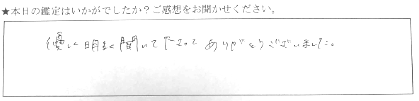 ★本日の鑑定はいかがでしたか?ご感想をお聞かせください。
優しく明るく聞いて下さって ありがとうございました。